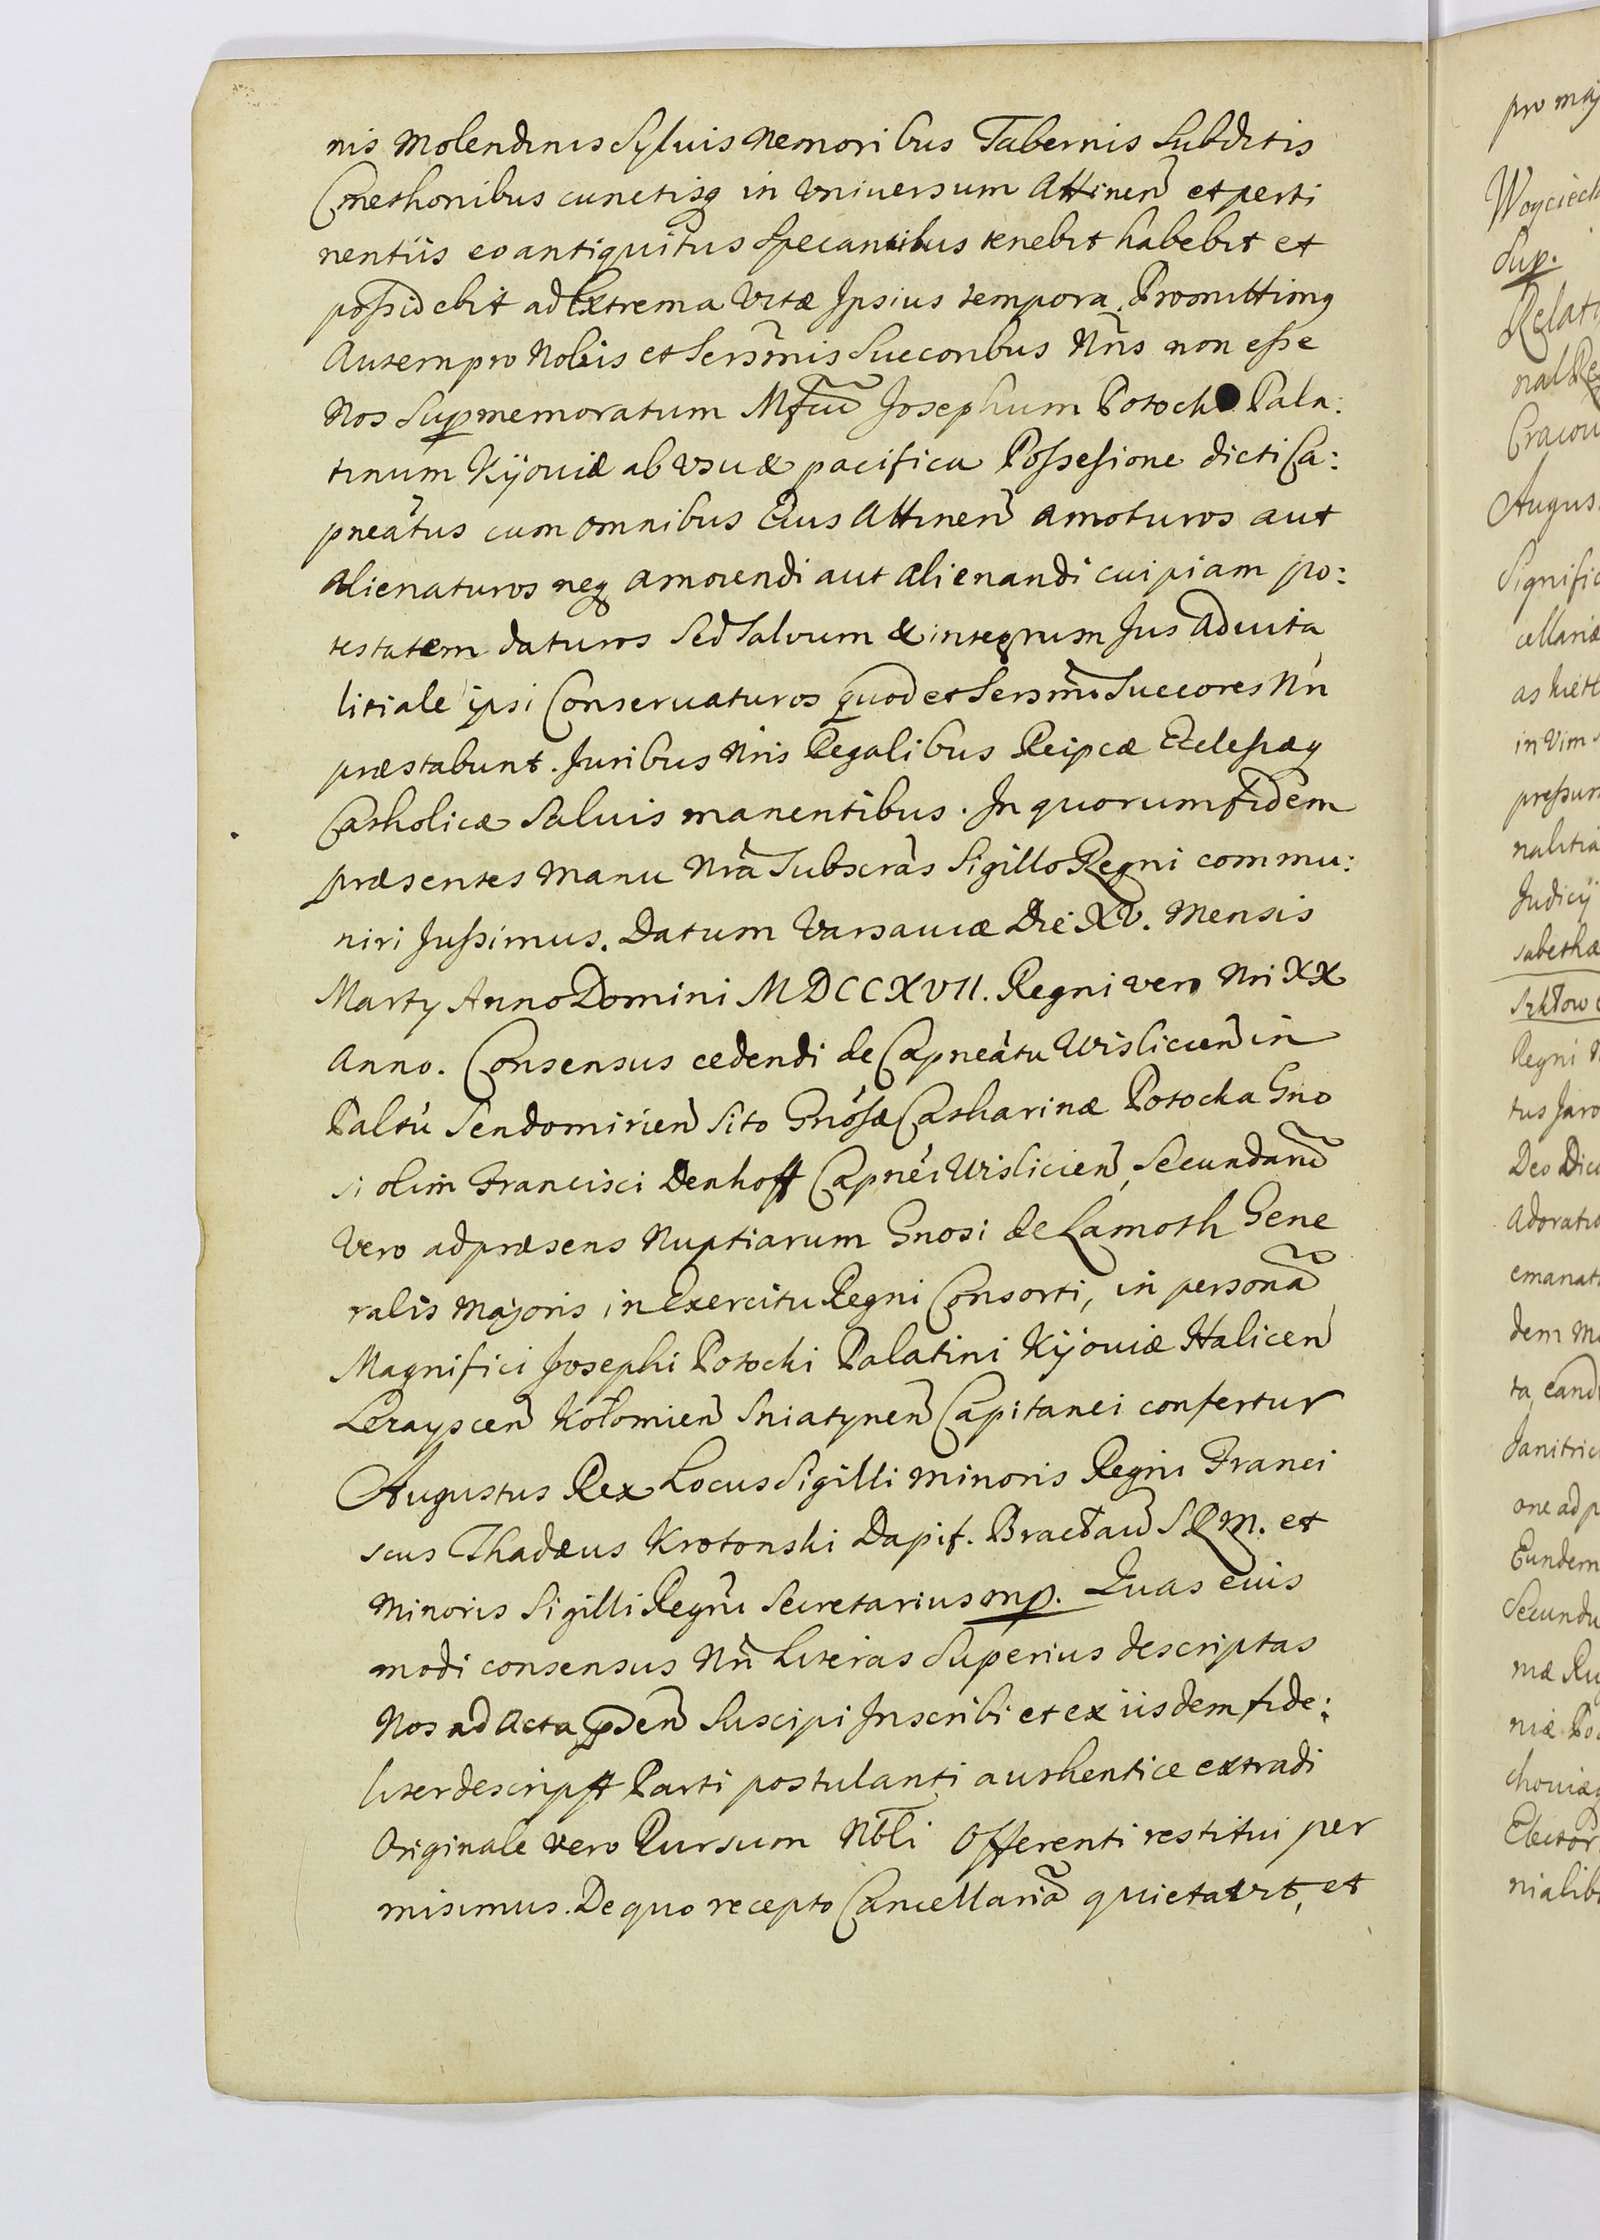 nis Molendinis Syluis Nemoribus Tabernis Subditis
Cmethonibus cunctisq in Vniuersum Attinen̄ et perti
nentijs eo antiquitus Specantibus tenebit habebit et
possidebit ad Extrema Vitæ Ipsius tempora. Promittimq
Autem pro Nobis et Serm̄is Succoribus Nr̄is non esse
Nos Supmemoratum Mfcū Josephum Potock Pala:
tinum Kijouiæ ab vsu & pacifica Possessione dicti Ca:
pneātus cum omnibus Eius Attinen̄ amoturos aut
Alienaturos neq amouendi aut alienandi cuipiam po:
testatem daturos Sed Saluum & integrum Jus Aduita
litiale ipsi Conseruaturos quod et Serm̄i Succores Nr̄i
præstabunt. Juribus Nris Regalibus Reipcæ Eclesiæq
Catholicæ Saluis manentibus. In quorum fidem
præsentes Manu Nrā Subscrās Sigillo Regni commu:
niri Jussimus. Datum Varsauiæ Die XV. Mensis
Martij Anno Domini MDCCXVII. Regni vero Nri XX
Anno. Consensus cedendi de Capneātu Wislicien̄ in
Paltū Sendomirien̄ Sito Gnōsæ Catharinæ Potocka Gno
si olim Francisci Denhoff Capnēi Wislicien̄, Secundarū
Vero ad præsens Nuptiarum Gnosi de Lamoth Gene
ralis Majoris in Exercitu Regni Consorti, in personā
Magnifici Josephi Potocki Palatini Kijouiæ Halicen̄
Lerayscen̄ Kołomien̄ Sniatynen̄ Capitanei confertur
Augustus Rex Locus Sigilli Minoris Regni Franci
scus Thadæus Krotonski Dapif. Bracłaū S R M. et
Minoris Sigilli Regni Secretarius mp. Quas eius
modi consensus Nr̄i Literas Superius descriptas
Nos ad Acta p̄sen̄ Suscipi Inscribi et ex iisdem fide:
liter descript Parti postulanti authentice extradi
Originale vero Rursum Nbli Offerenti restitui per
misimus. De quo recepto Cancellariā quietavit, et